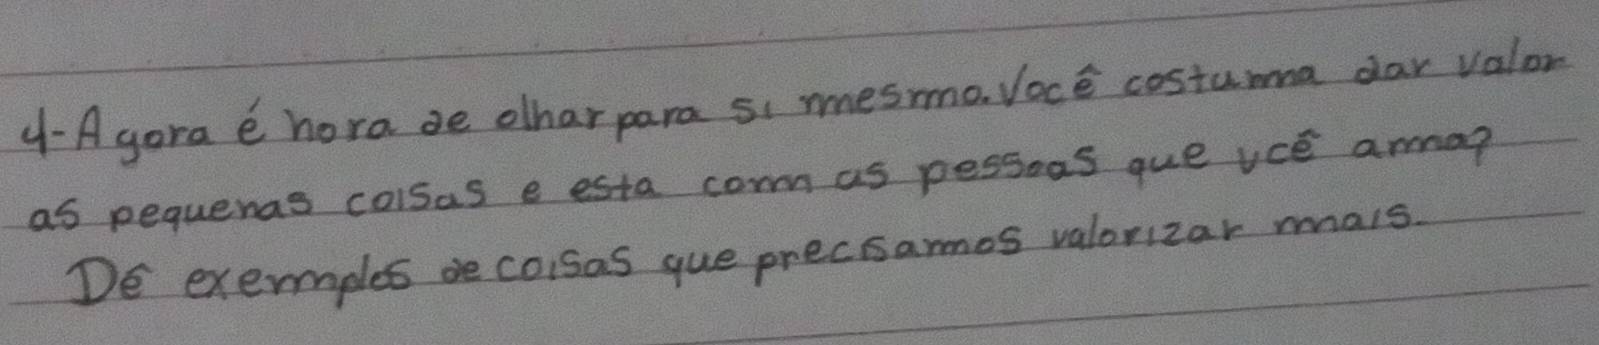 4-Agora é hora de olhar para si mesmo. Você costuma dar valor
as pequenas coisas e esta com as pessoas que vcê ama?
Dê exemplos de coisas que precisamos valorizar mais.